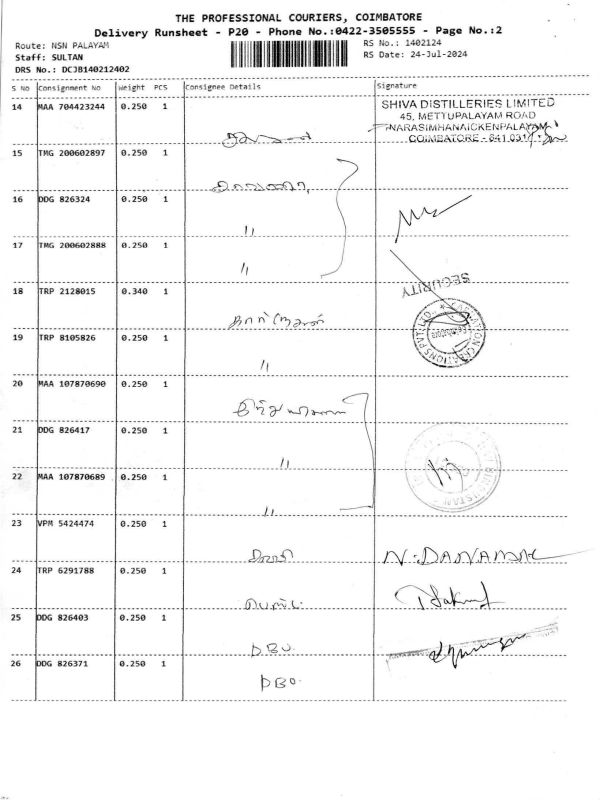 THE PROFESSIONAL COURIERS, COIMBATORE
Delivery Runsheet - P20 - Phone No.:0422-3505555 - Page No.:2
Route: NSN PALAYAM
RS No.: 1402124
Staff: SULTAN
RS Date: 24-Jul-2024
DRS No.: DCJB140212402
S No Consignment No Weight PCS Consignee Details Signature
14 MAA 704423244 0.250 1
SHIVA DISTILLERIES LIMITED
45, METTUPALAYAM ROAD
NARASIMHANAICKENPALAYAM
COIMBATORE - 641 031
15 TMG 200602897 0.250 1
16 DDG 826324 0.250 1
"
17 TMG 200602888 0.250 1
"
SECURITY
18 TRP 2128015 0.340 1
19 TRP 8105826 0.250 1
"
20 MAA 107870690 0.250 1
21 DDG 826417 0.250 1
"
22 MAA 107870689 0.250 1
"
23 VPM 5424474 0.250 1
24 TRP 6291788 0.250 1
25 DDG 826403 0.250 1
DBO
26 DDG 826371 0.250 1
DBO